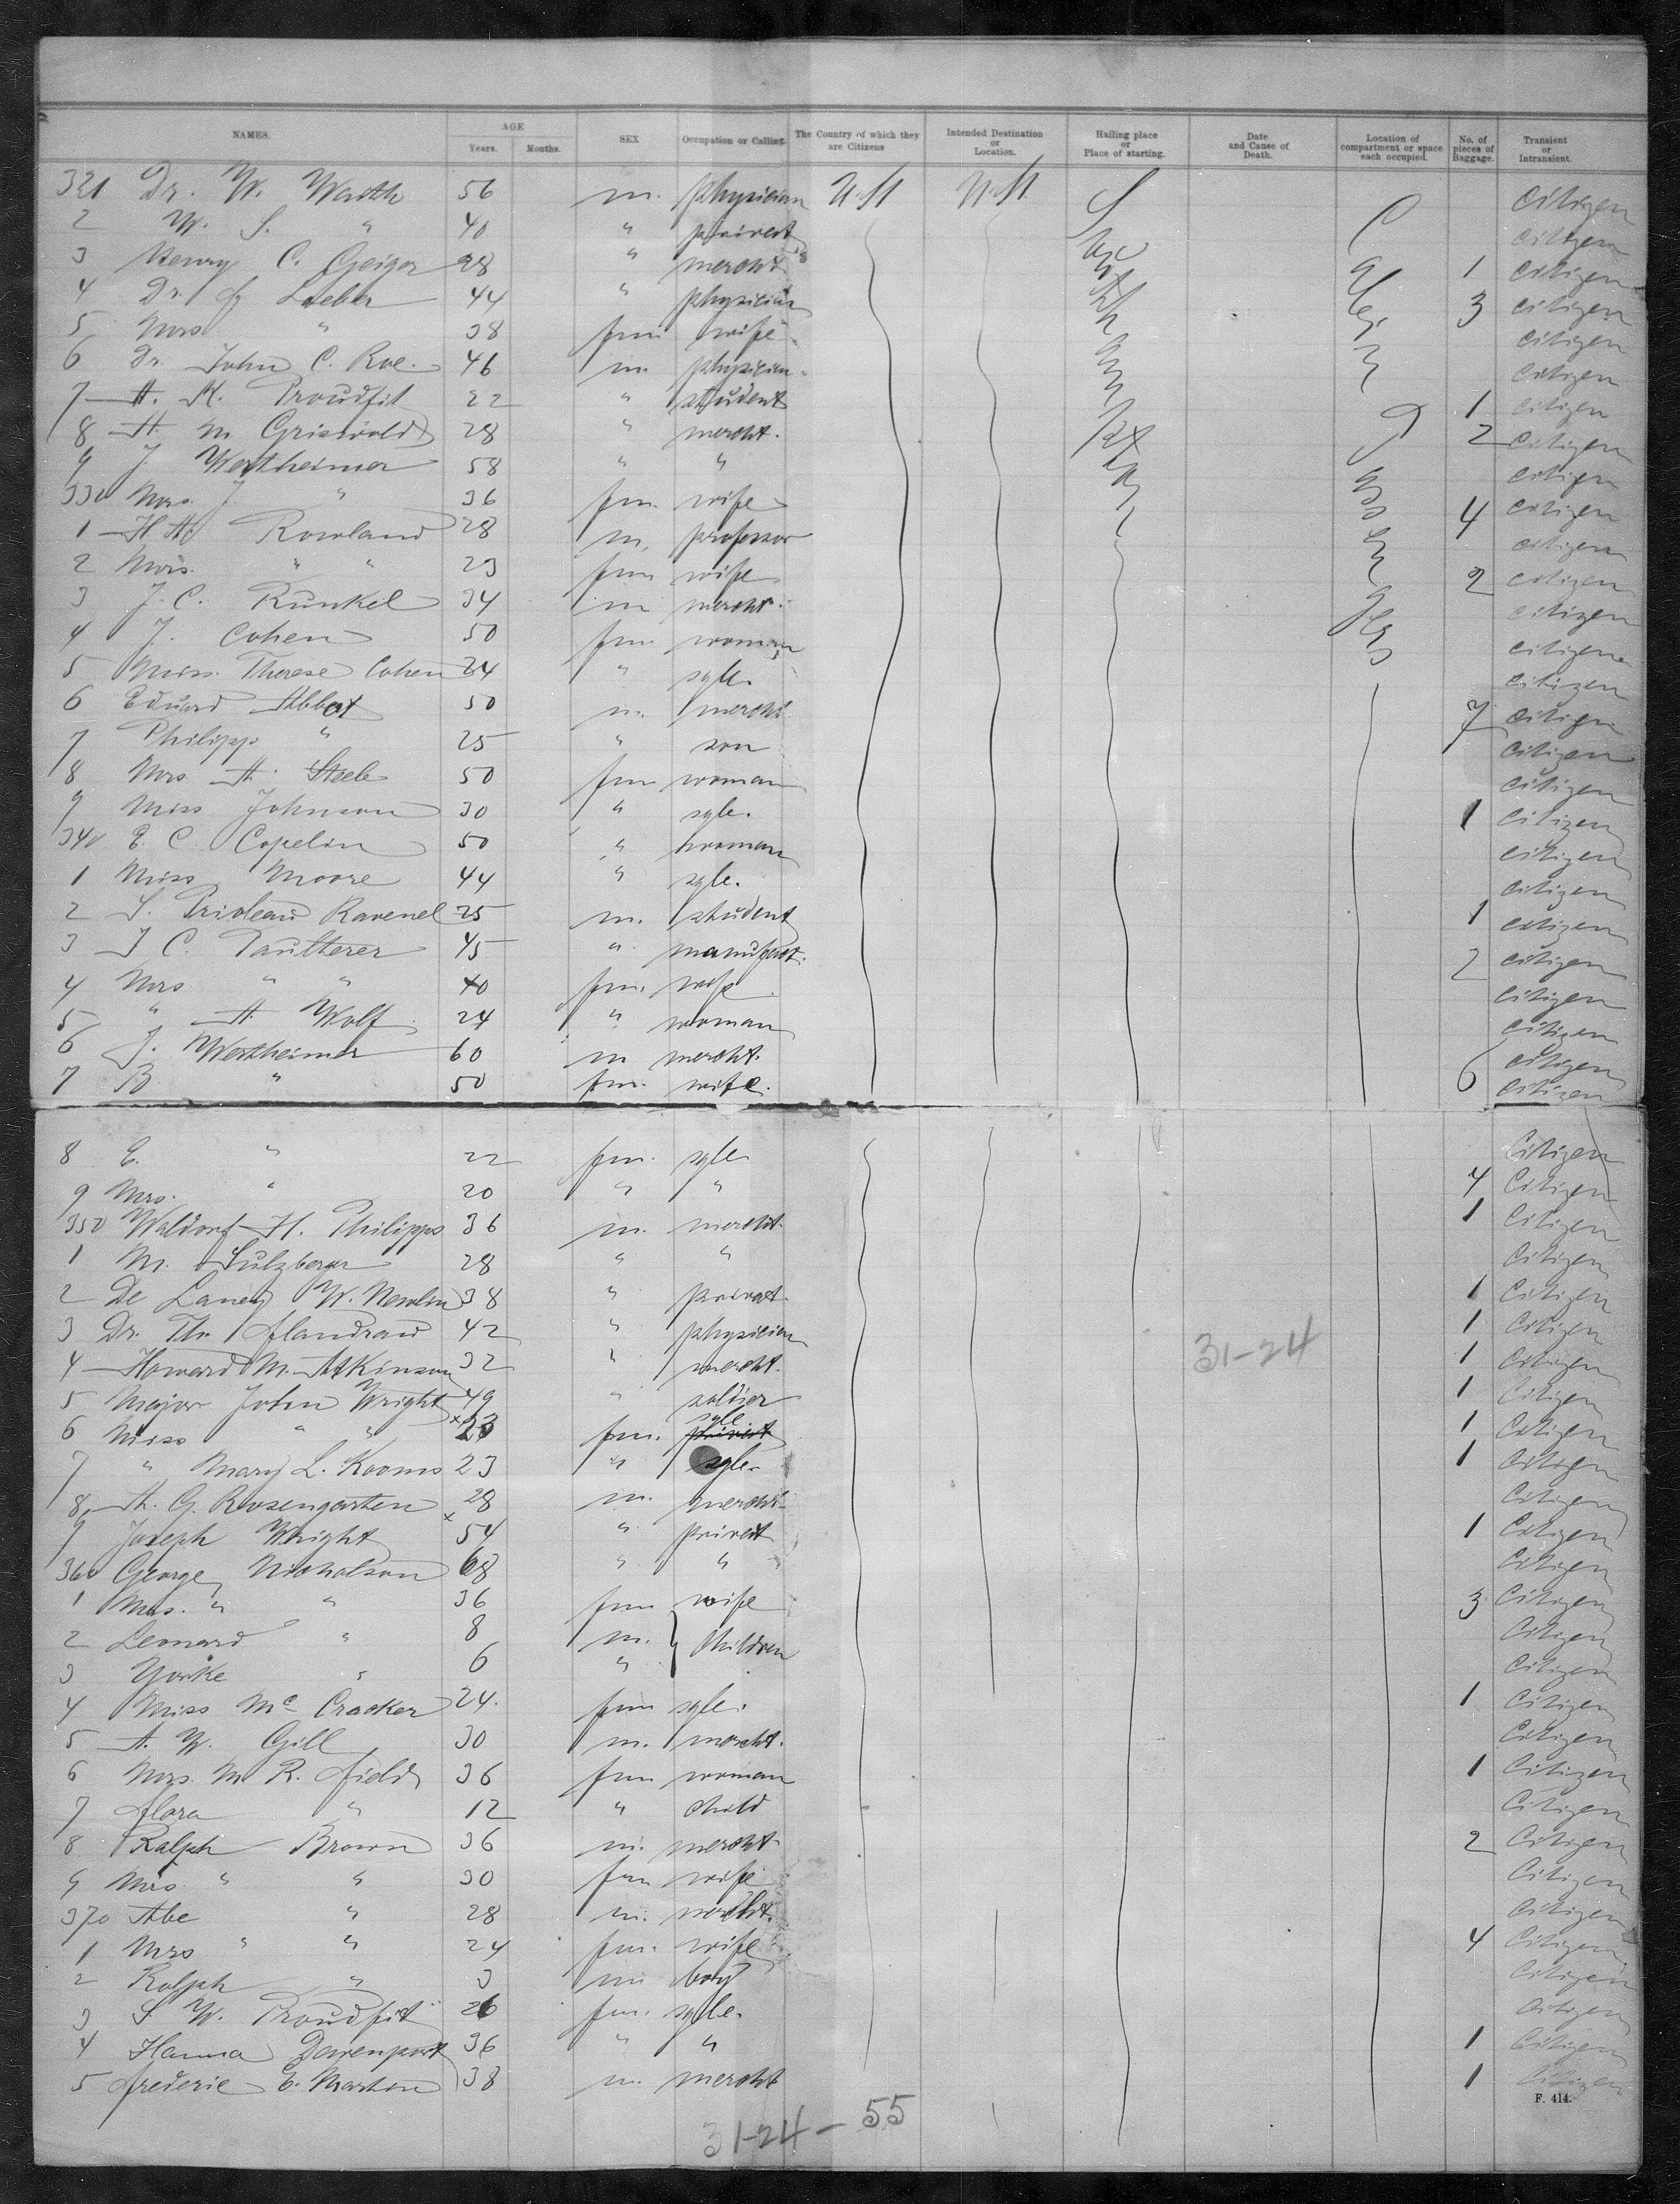 NAMES. AGE SEX Occupation or Calling. The Country of which they are Citizens Intended Destination or Location. Hailing place or Place of starting. Date and Cause of Death. Location of compartment or space each occupied. No. of pieces of Baggage. Transient or Intransient.
Years. Months.
321 Dr. W. 56 m. physician U.St U.St Citizen
2 W. S. " 40 " privat Citizen
3 Henry C. Geiger 28 " mercht 1 Citizen
4 Dr. Loeber 44 " physician 3 Citizen
5 Mrs. " 38 fm wife Citizen
6 Dr. John C. Roe 46 m physician Citizen
7 A. K. Proudfit 22 " student 1 Citizen
8 A. M. Griswold 28 " mercht. 2 Citizen
9 J. Wertheimer 58 " " Citizen
330 Mrs. J. " 36 fm. wife 4 Citizen
1 H. A. Rowland 28 m. professor Citizen
2 Mrs. " " 23 fm wife 2 Citizen
3 J. C. Runkel 34 m mercht. Citizen
4 J. Cohen 50 fm woman Citizen
5 Miss. Therese Cohen 24 " sgle. Citizen
6 Eduard Abbot 50 m. mercht. 7 Citizen
7 Philipp " 25 " son Citizen
8 Mrs A. Steele 50 fm woman Citizen
9 Miss Johnson 30 " sgle. 1 Citizen
340 E. C. Copelin 50 " woman Citizen
1 Miss Moore 44 " sgle. Citizen
2 S. Prioleau Ravenel 25 m. student 1 Citizen
3 J C. Paulterer 45 " manufact. 2 Citizen
4 Mrs " " 40 fm. wife Citizen
5 " A. Wolf 24 " woman Citizen
6 J. Wertheimer 60 m mercht. Citizen
7 B. " 50 fm. wife. 6 Citizen
8 E. " 22 fm. sgle Citizen
9 Mrs. " 20 " " 4 Citizen
350 Waldorf H. Philipps 36 m. mercht. 1 Citizen
1 M. Sulzberger 28 " " Citizen
2 De Lancey W. Newlin 38 " privat. 1 Citizen
3 Dr. Th. Flandrau 42 " physician 1 Citizen
4 Howard M. Atkinson 32 " mercht. 31-24 1 Citizen
5 Major John Wright 49 " soldier 1 Citizen
6 Miss " " x23 fm. sgle 1 Citizen
7 " Mary L. Kooms 23 " sgle. 1 Citizen
8 A. G. Rosengarten 28 m. mercht. Citizen
9 Joseph Wright x54 " privat 1 Citizen
360 George Nicholson 68 " " Citizen
1 Mrs. " " 36 fm wife 3 Citizen
2 Leonard " 8 m. children Citizen
3 Yorke " 6 " Citizen
4 Miss Mc Cracker 24. fm sgle. 1 Citizen
5 A. W. Gill 30 m. mercht. Citizen
6 Mrs. M R. Field 36 fm woman 1 Citizen
7 Flora " 12 " child Citizen
8 Ralph Brown 36 m. mercht. 2 Citizen
9 Mrs. " " 30 fm wife Citizen
370 Abe " 28 m. mercht. Citizen
1 Mrs " " 24 fm. wife 4 Citizen
2 Ralph " 3 m boy Citizen
3 S. W. Proudfit 26 fm. sgle. Citizen
4 Hanna Davenport 36 " " 1 Citizen
5 Frederic E. Marton 38 m. mercht 1 Citizen
F. 414.
31-24-55